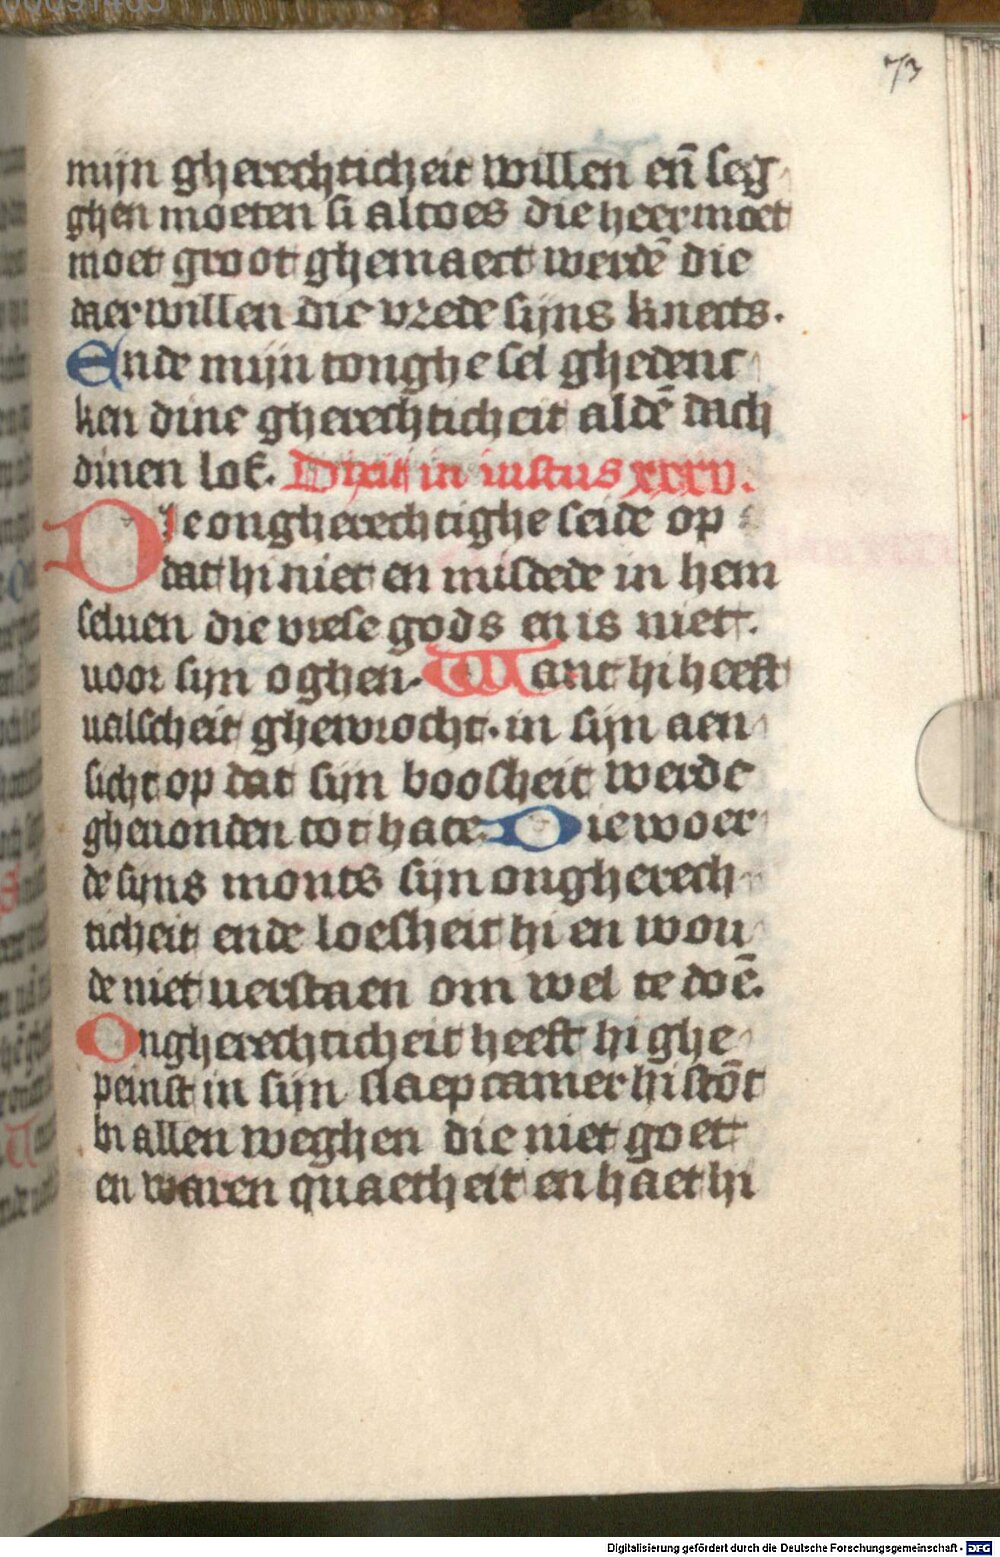 73
mijn gherechticheit willen en̄ seg
ghen moeten si altoes die heer moet
moet groot ghemaect werdē die
daer willen die vrede sijns knecs.
Ende mijn tonghe sel ghedenc
ken dine gherechticheit aldē dach
dinen lof. Dixit in iustus xxxv.
Die ongherechtighe seide op
dat hi niet en misdede in hem
seluen die vrese gods en is niet
voor sijn oghen. Want hi heeft
valscheit ghewrocht. in sijn aen
sicht op dat sijn boosheit werde
gheuonden tot hate. Die woer
de sijns monts sijn ongherech
ticheit ende loesheit hi en wou
de niet uerstaen om wel te doē.
Ongherechticheit heeft hi ghe
peinst in sijn slaepcamer hi stōt
in allen weghen die niet goet
en waren quaetheit en haet hi
Digitalisierung gefördert durch die Deutsche Forschungsgemeinschaft - DFG